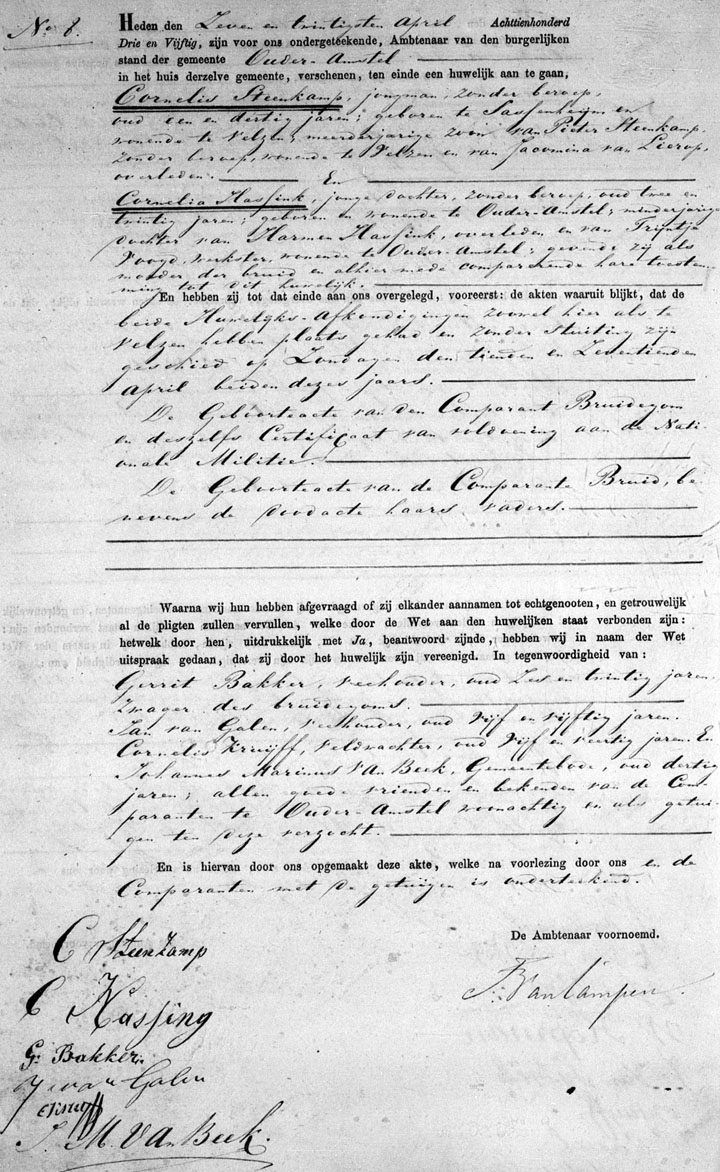 No 8.
Heden den Zeven en twintigsten April Achttienhonderd
Drie en Vijftig, zijn voor ons ondergeteekende, Ambtenaar van den burgerlijken
stand der gemeente Ouder-Amstel
in het huis derzelve gemeente, verschenen, ten einde een huwelijk aan te gaan,
Cornelis Steenkamp, jongman, zonder beroep,
oud een en dertig jaren; geboren te Sassenheim en
wonende te Velzen; meerderjarige zoon van Pieter Steenkamp,
zonder beroep, wonende te Velzen en van Jacomina van Lierop,
overleden. En
Cornelia Hassink, jonge dochter, zonder beroep, oud twee en
twintig jaren; geboren en wonende te Ouder-Amstel; minderjarige
dochter van Harmen Hassink, overleden en van Trijntje
Voogd, werkster, wonende te Ouder-Amstel; gevende zij als
moeder der bruid en alhier mede comparerende hare toestem-
ming tot dit huwelijk.
En hebben zij tot dat einde aan ons overgelegd, vooreerst: de akten waaruit blijkt, dat de
beide Huwelijks-Afkondigingen zoowel hier als te
Velzen hebben plaats gehad en zonder stuiting zijn
geschied op Zondagen den tienden en Zeventienden
April beiden dezes jaars.
De Geboorteacte van den Comparant Bruidegom
en deszelfs Certificaat van voldoening aan de Nati-
onale Militie.
De Geboorteacte van de Comparante Bruid, be-
nevens de doodacte haars vaders.
Waarna wij hun hebben afgevraagd of zij elkander aannamen tot echtgenooten, en getrouwelijk
al de pligten zullen vervullen, welke door de Wet aan den huwelijken staat verbonden zijn:
hetwelk door hen, uitdrukkelijk met Ja, beantwoord zijnde, hebben wij in naam der Wet
uitspraak gedaan, dat zij door het huwelijk zijn vereenigd. In tegenwoordigheid van:
Gerrit Bakker, veehouder, oud Zes en twintig jaren,
Zwager des bruidegoms.
Jan van Galen, veehouder, oud vijf en vijftig jaren.
Cornelis Kruijff, veldwachter, oud vijf en veertig jaren. En
Johannes Marinus van Beek, Gemeentebode, oud dertig
jaren; allen goede vrienden en bekenden van de Com-
paranten te Ouder-Amstel woonachtig en als getui-
gen ten deze verzocht.
En is hiervan door ons opgemaakt deze akte, welke na voorlezing door ons en de
Comparanten met de getuigen is onderteekend.
De Ambtenaar voornoemd.
C Steenkamp
C Hassing
G. Bakker
J van Galen
J. M. Van Beek.